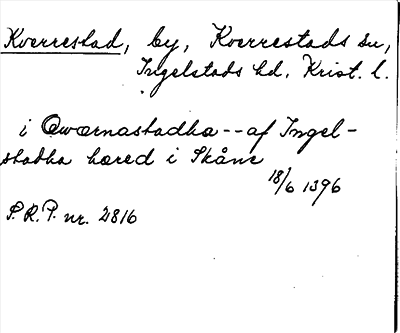 Kverrestad, by, Kverrestads sn,
Ingelstads hd. Krist. l.
i Qwærnastadha -- af Ingel-
stadha hæred i Skåne
18/6 1396
S.R.P. nr. 2816